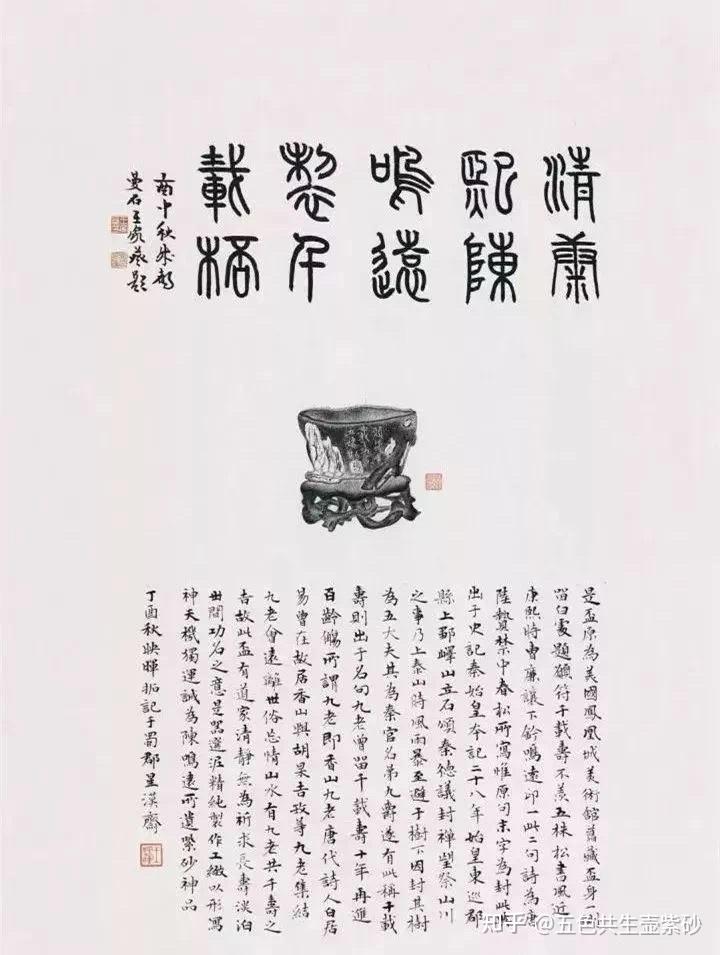 清康
熙陳
鳴遠
製千
載桮
酉中秋成都
曼石王家葵題
是盃原為美國鳳凰城美術館舊藏盃身
留白處題願符千載壽不羨五株松書風近
康熙時曹廉讓下鈐鳴遠印一此二句詩為唐
陸贄禁中春松所寫惟原句末字為封此
出于史記秦始皇本記二十八年始皇東巡郡
縣上鄒嶧山立石頌秦德議封禪望祭山川
之事乃上泰山時風雨暴至避于樹下因封其樹
為五大夫其為秦官名第九爵遂有此稱千載
壽則出于名句九老曾留千載壽十年再進
百齡觴所謂九老即香山九老唐代詩人白居
易曾在故居香山與胡杲吉玫等九老集結
九老會遠離世俗忘情山水有九老共千壽之
吉故此盃有道家清靜無為祈求長壽淡泊
世間功名之意是器選泥精純製作工緻以形寫
神天機獨運誠為陳鳴遠所遺紫砂神品
丁酉秋映暉拓記于蜀郡星漢齋
知乎 @五色共生壶紫砂